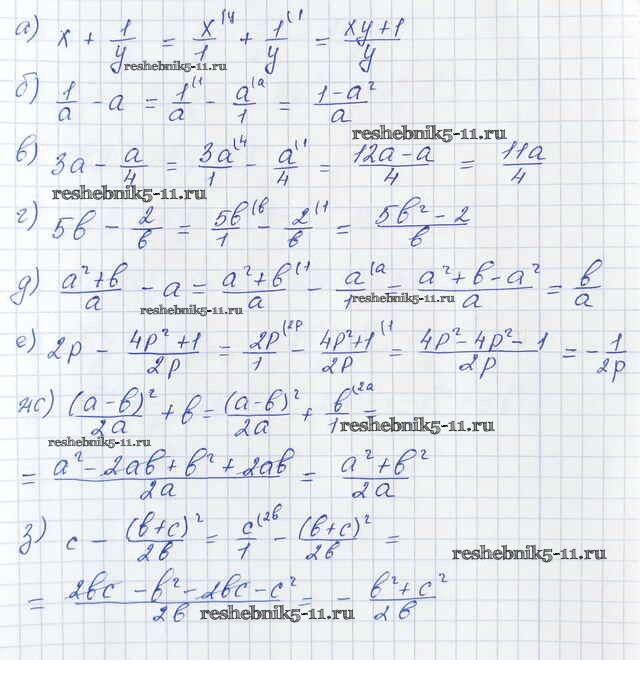 а) x + 1/y = x/1 (y + 1/y (1 = (xy+1)/y
reshebnik5-11.ru
б) 1/a - a = 1/a (1 - a/1 (a = (1-a²)/a
reshebnik5-11.ru
в) 3a - a/4 = 3a/1 (4 - a/4 (1 = (12a-a)/4 = 11a/4
reshebnik5-11.ru
г) 5b - 2/b = 5b/1 (b - 2/b (1 = (5b²-2)/b
д) (a²+b)/a - a = (a²+b)/a (1 - a/1 (a = (a²+b-a²)/a = b/a
reshebnik5-11.ru reshebnik5-11.ru
е) 2p - (4p²+1)/2p = 2p/1 (2p - (4p²+1)/2p (1 = (4p²-4p²-1)/2p = -1/2p
ж) (a-b)²/2a + b = (a-b)²/2a + b/1 (2a =
reshebnik5-11.ru reshebnik5-11.ru
= (a²-2ab+b²+2ab)/2a = (a²+b²)/2a
з) c - (b+c)²/2b = c/1 (2b - (b+c)²/2b =
reshebnik5-11.ru
= (2bc-b²-2bc-c²)/2b = -(b²+c²)/2b
reshebnik5-11.ru